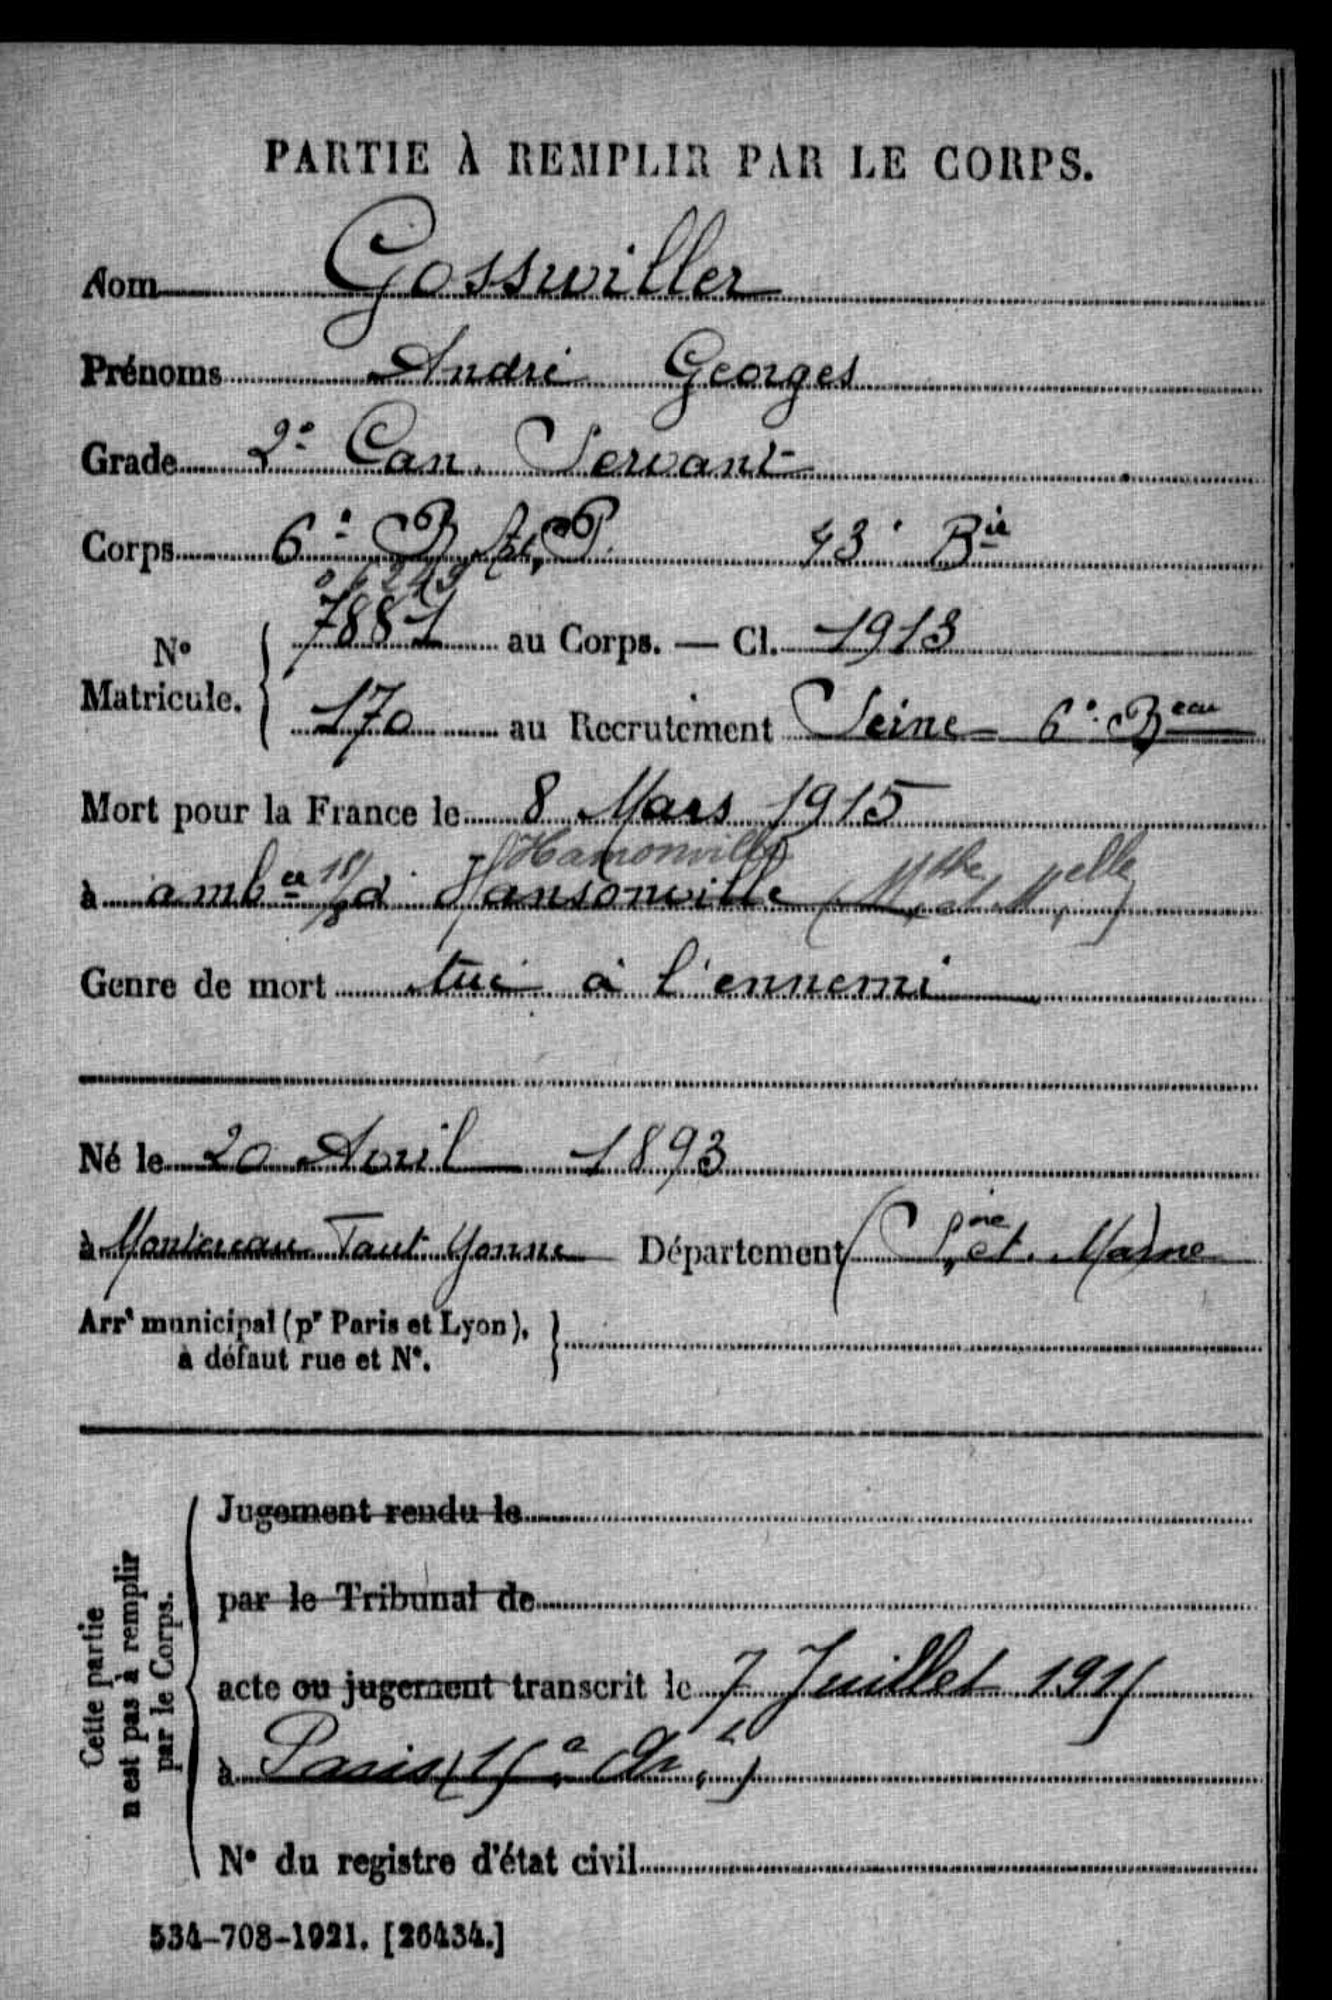 PARTIE À REMPLIR PAR LE CORPS.
Nom Gosswiller
Prénoms André Georges
Grade 2e Can. Servant
Corps 6e B 43e Bie
7881 au Corps. — Cl. 1913
N° Matricule.
170 au Recrutement Seine 6e Beau
Mort pour la France le 8 Mars 1915
Hamonville
à ambce à Hansonville (Mthe et Melle)
Genre de mort tué à l'ennemi
Né le 20 Avril 1893
à Montereau Faut Yonne Département (Sne et Marne)
Arrt municipal (pr Paris et Lyon), à défaut rue et N°.
Cette partie n'est pas à remplir par le Corps.
Jugement rendu le
par le Tribunal de
acte ou jugement transcrit le 7 Juillet 1915
à Paris (15e Art)
N° du registre d'état civil
534-708-1921. [26434.]